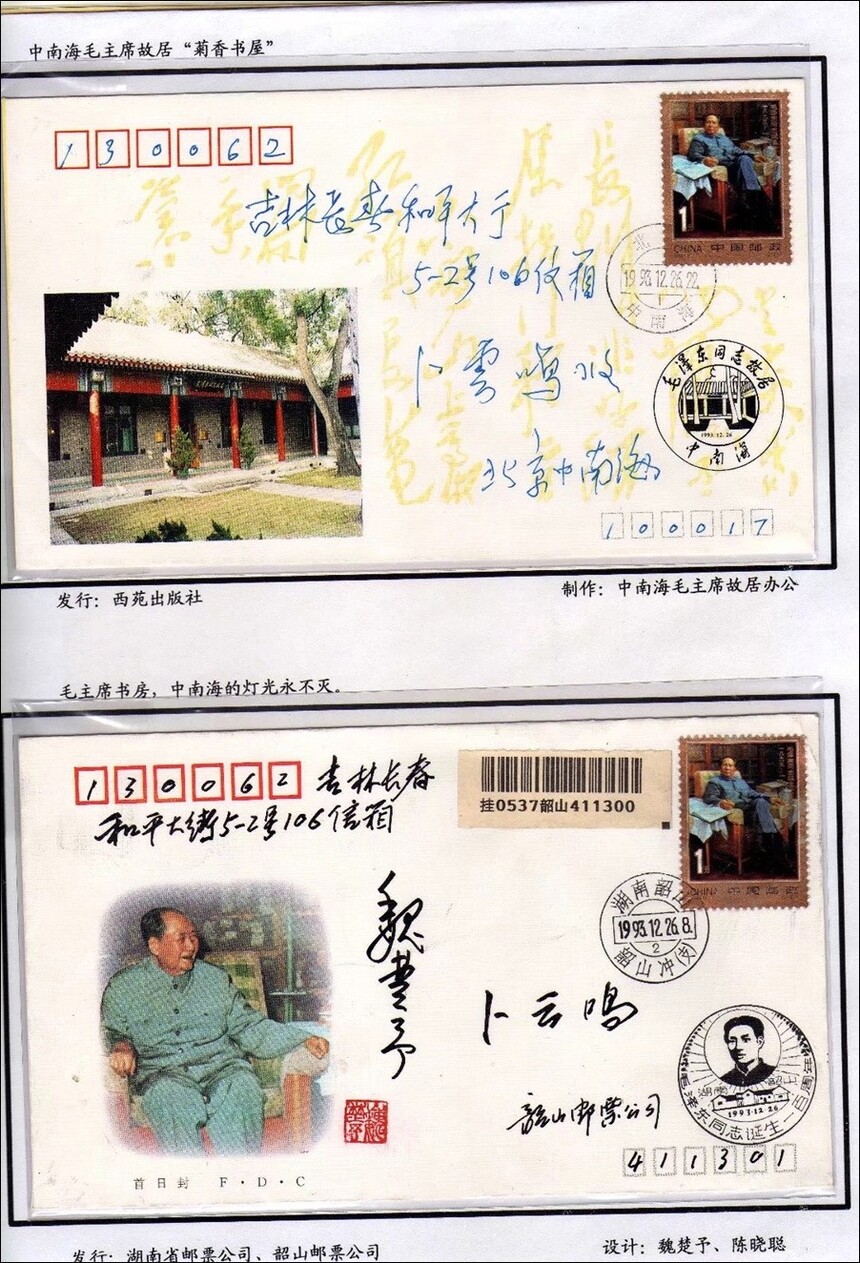 中南海毛主席故居“菊香书屋”
130062
吉林长春和平大厅
5-2号106信箱
卜雲鸣收
北京中南海
100017
1
CHINA 中国邮政
北京
1993.12.26.22
中南海
毛泽东同志故居
1993.12.26
中南海
发行：西苑出版社
制作：中南海毛主席故居办公
毛主席书房，中南海的灯光永不灭。
130062 吉林长春
和平大街5-2号106信箱
挂0537韶山411300
1
CHINA 中国邮政
湖南韶山
1993.12.26.8.
2
韶山冲(支)
魏楚予
卜云鸣
湖南 韶山
1993·12·26
毛泽东同志诞生一百周年
韶山邮票公司
411301
首日封 F·D·C
发行：湖南省邮票公司、韶山邮票公司
设计：魏楚予、陈晓聪